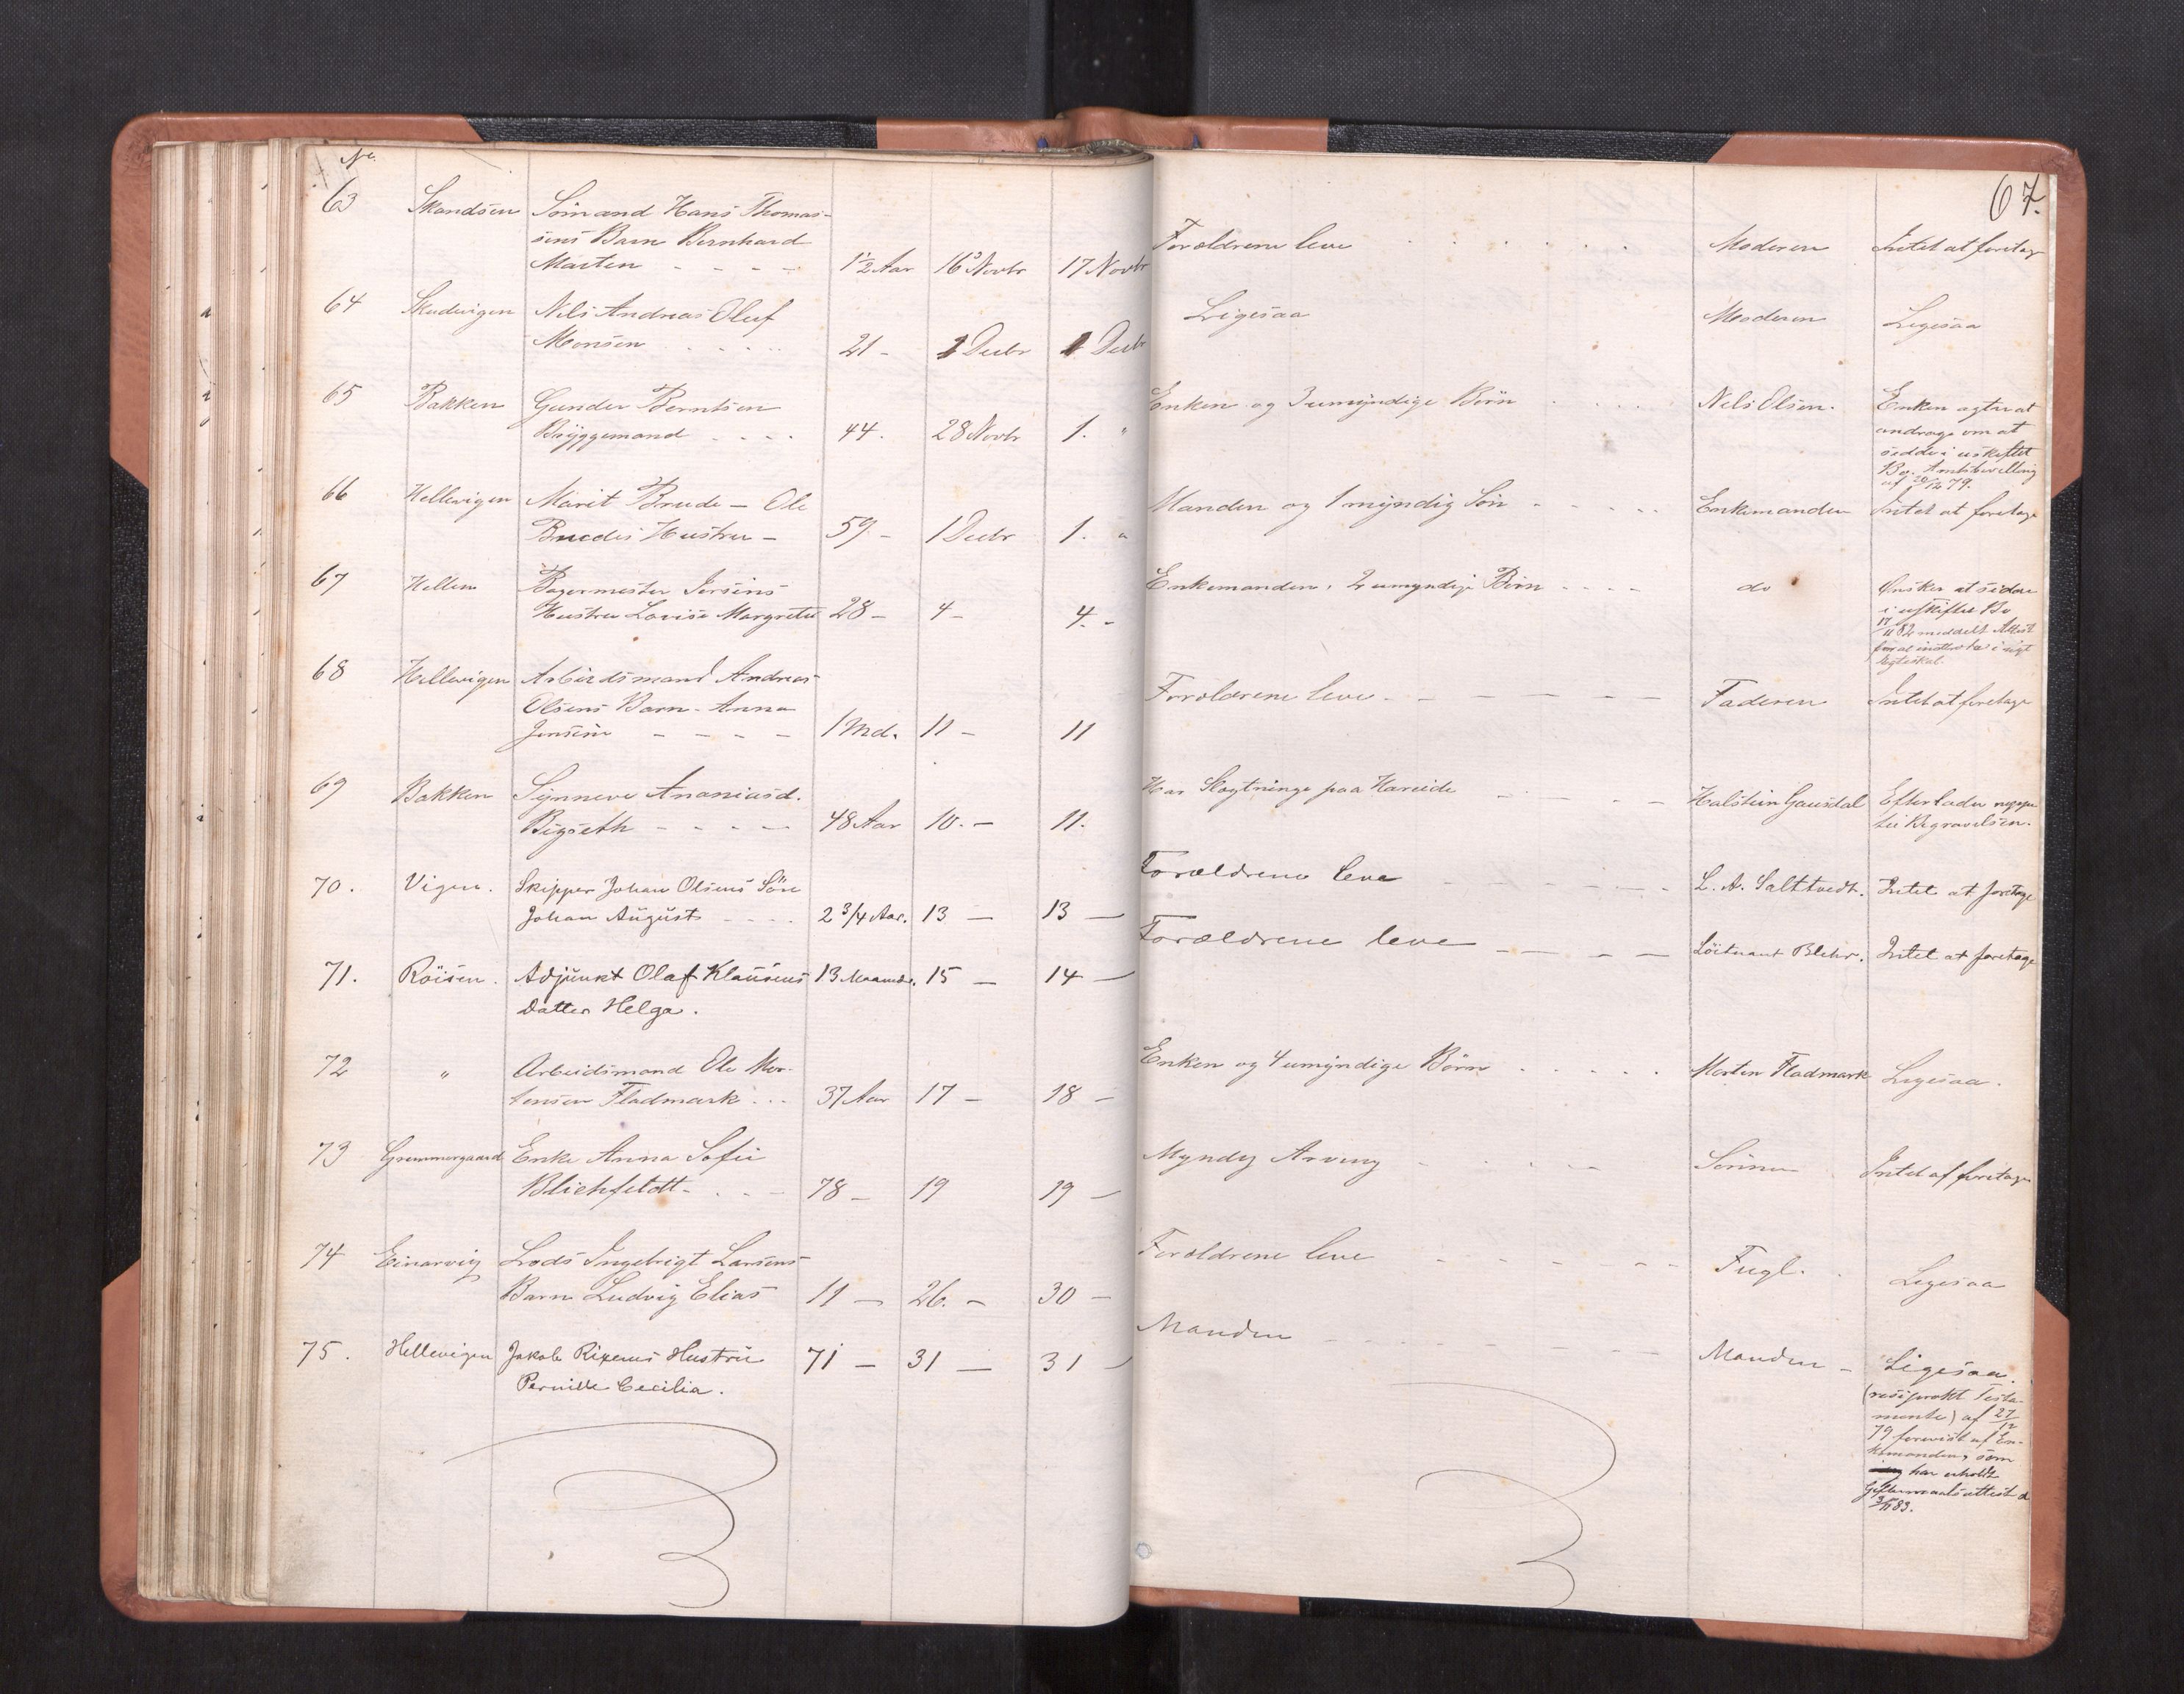 No.
67.
63 Skandsen Sömand Hans Thomas-
sens Barn Bernhard
Martin - - - - 1½ Aar 16 Novbr 17 Novbr
Forældrene leve Moderen Intet at foretage
64 Skudvigen Nils Andreas Oluf
Monsen 21 - 1 Decbr 1 Decbr
Ligesaa Moderen Ligesaa
65 Bakken Gunder Berntsen
Bryggemand 44. 28 Novbr 1. "
Enken og 3 umyndige Börn Nels Olsen. Enken agter at
andrage om at
sidde i uskiftet
Bo. Amtsbevilling
af 20/12 79.
66 Hellevigen Marit Brude - Ole
Brudes Hustru - 59 - 1 Decbr 1. "
Manden og 1 myndig Sön Enkemanden Intet at foretage
67 Hellen Bagermester Jersins
Hustru Lovise Margrete 28 - 4 - 4. -
Enkemanden, 2 umyndige Börn do Önsker at sidde
i uskiftet Bo
17/11 82 meddelt Attest
for at indtræde i nyt
Ægteskab.
68 Hellevigen Arbeidsmand Andreas
Olsens Barn - Anna
Jensine - - - - 1 Md. 11 - 11
Forældrene leve. - - - - Faderen Intet at foretage
69 Bakken Synneve Ananiasd.
Bigseth - - - - 48 Aar 10. - 11.
Har Slægtninge paa Hareide Halstein Gausdal Efterlader neppe
til Begravelsen.
70. Vigen. Skipper Johan Olsens Sön
Johan August - - - 2 3/4 Aar. 13 - 13 -
Forældrene leve L. A. Salttvedt. Intet at foretage
71. Röisen. Adjunkt Olaf Klausens 13 Maaneder. 15 - 14 -
Datter Helga.
Forældrene leve Löitnant Blehr. Intet at foretage
72 " Arbeidsmand Ole Mor-
tensen Fladmark 37 Aar 17 - 18 -
Enken og 4 umyndige Börn Morten Fladmark Ligesaa.
73 Grimmergaard Enke Anna Sofie
Blichfeldt - 78 - 19 19 -
Myndig Arving Sönnen Intet at foretage
74 Einarvig Lods Ingebrigt Larsens
Barn Ludvig Elias 11 - 26. - 30 -
Forældrene leve Fugl. Ligesaa
75. Hellevigen Jakob Rixens Hustru 71 - 31 - 31 -
Pernille Cecilia.
Manden Manden - Ligesaa.
(resiprokt Testa-
mente) af 27/12
79 forevist af En-
kemanden, som
har erholdt
Giftermaalsattest d
3/11 83.